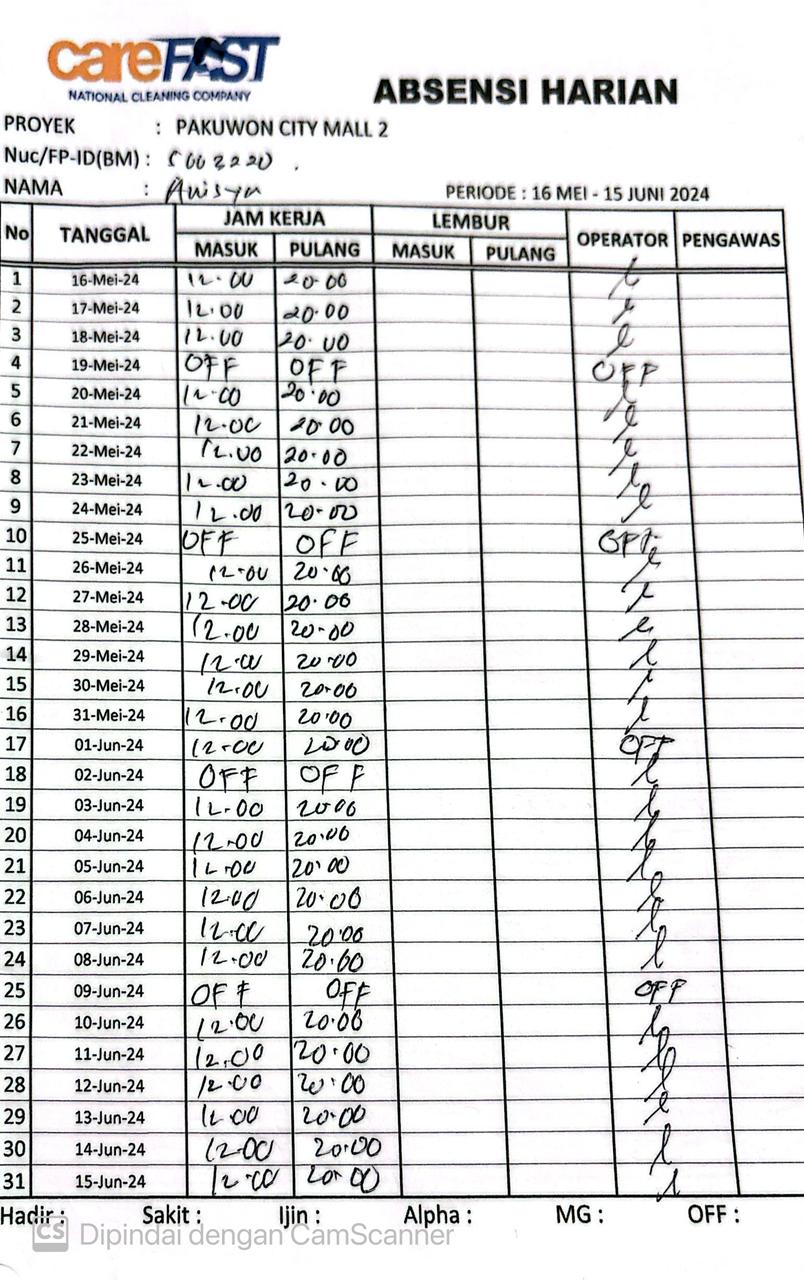 careFAST
NATIONAL CLEANING COMPANY
ABSENSI HARIAN
PROYEK : PAKUWON CITY MALL 2
Nuc/FP-ID(BM) :
NAMA : Anisya PERIODE : 16 MEI - 15 JUNI 2024
No TANGGAL JAM KERJA LEMBUR OPERATOR PENGAWAS
MASUK PULANG MASUK PULANG
1 16-Mei-24 12.00 20.00
2 17-Mei-24 12.00 20.00
3 18-Mei-24 12.00 20.00
4 19-Mei-24 OFF OFF OFF
5 20-Mei-24 12.00 20.00
6 21-Mei-24 12.00 20.00
7 22-Mei-24 12.00 20.00
8 23-Mei-24 12.00 20.00
9 24-Mei-24 12.00 20.00
10 25-Mei-24 OFF OFF OFF
11 26-Mei-24 12.00 20.00
12 27-Mei-24 12.00 20.00
13 28-Mei-24 12.00 20.00
14 29-Mei-24 12.00 20.00
15 30-Mei-24 12.00 20.00
16 31-Mei-24 12.00 20.00
17 01-Jun-24 12.00 20.00 OFF
18 02-Jun-24 OFF OFF
19 03-Jun-24 12.00 20.00
20 04-Jun-24 12.00 20.00
21 05-Jun-24 12.00 20.00
22 06-Jun-24 12.00 20.00
23 07-Jun-24 12.00 20.00
24 08-Jun-24 12.00 20.00
25 09-Jun-24 OFF OFF OFF
26 10-Jun-24 12.00 20.00
27 11-Jun-24 12.00 20.00
28 12-Jun-24 12.00 20.00
29 13-Jun-24 12.00 20.00
30 14-Jun-24 12.00 20.00
31 15-Jun-24 12.00 20.00
Hadir : Sakit : Ijin : Alpha : MG : OFF :
CS Dipindai dengan CamScanner